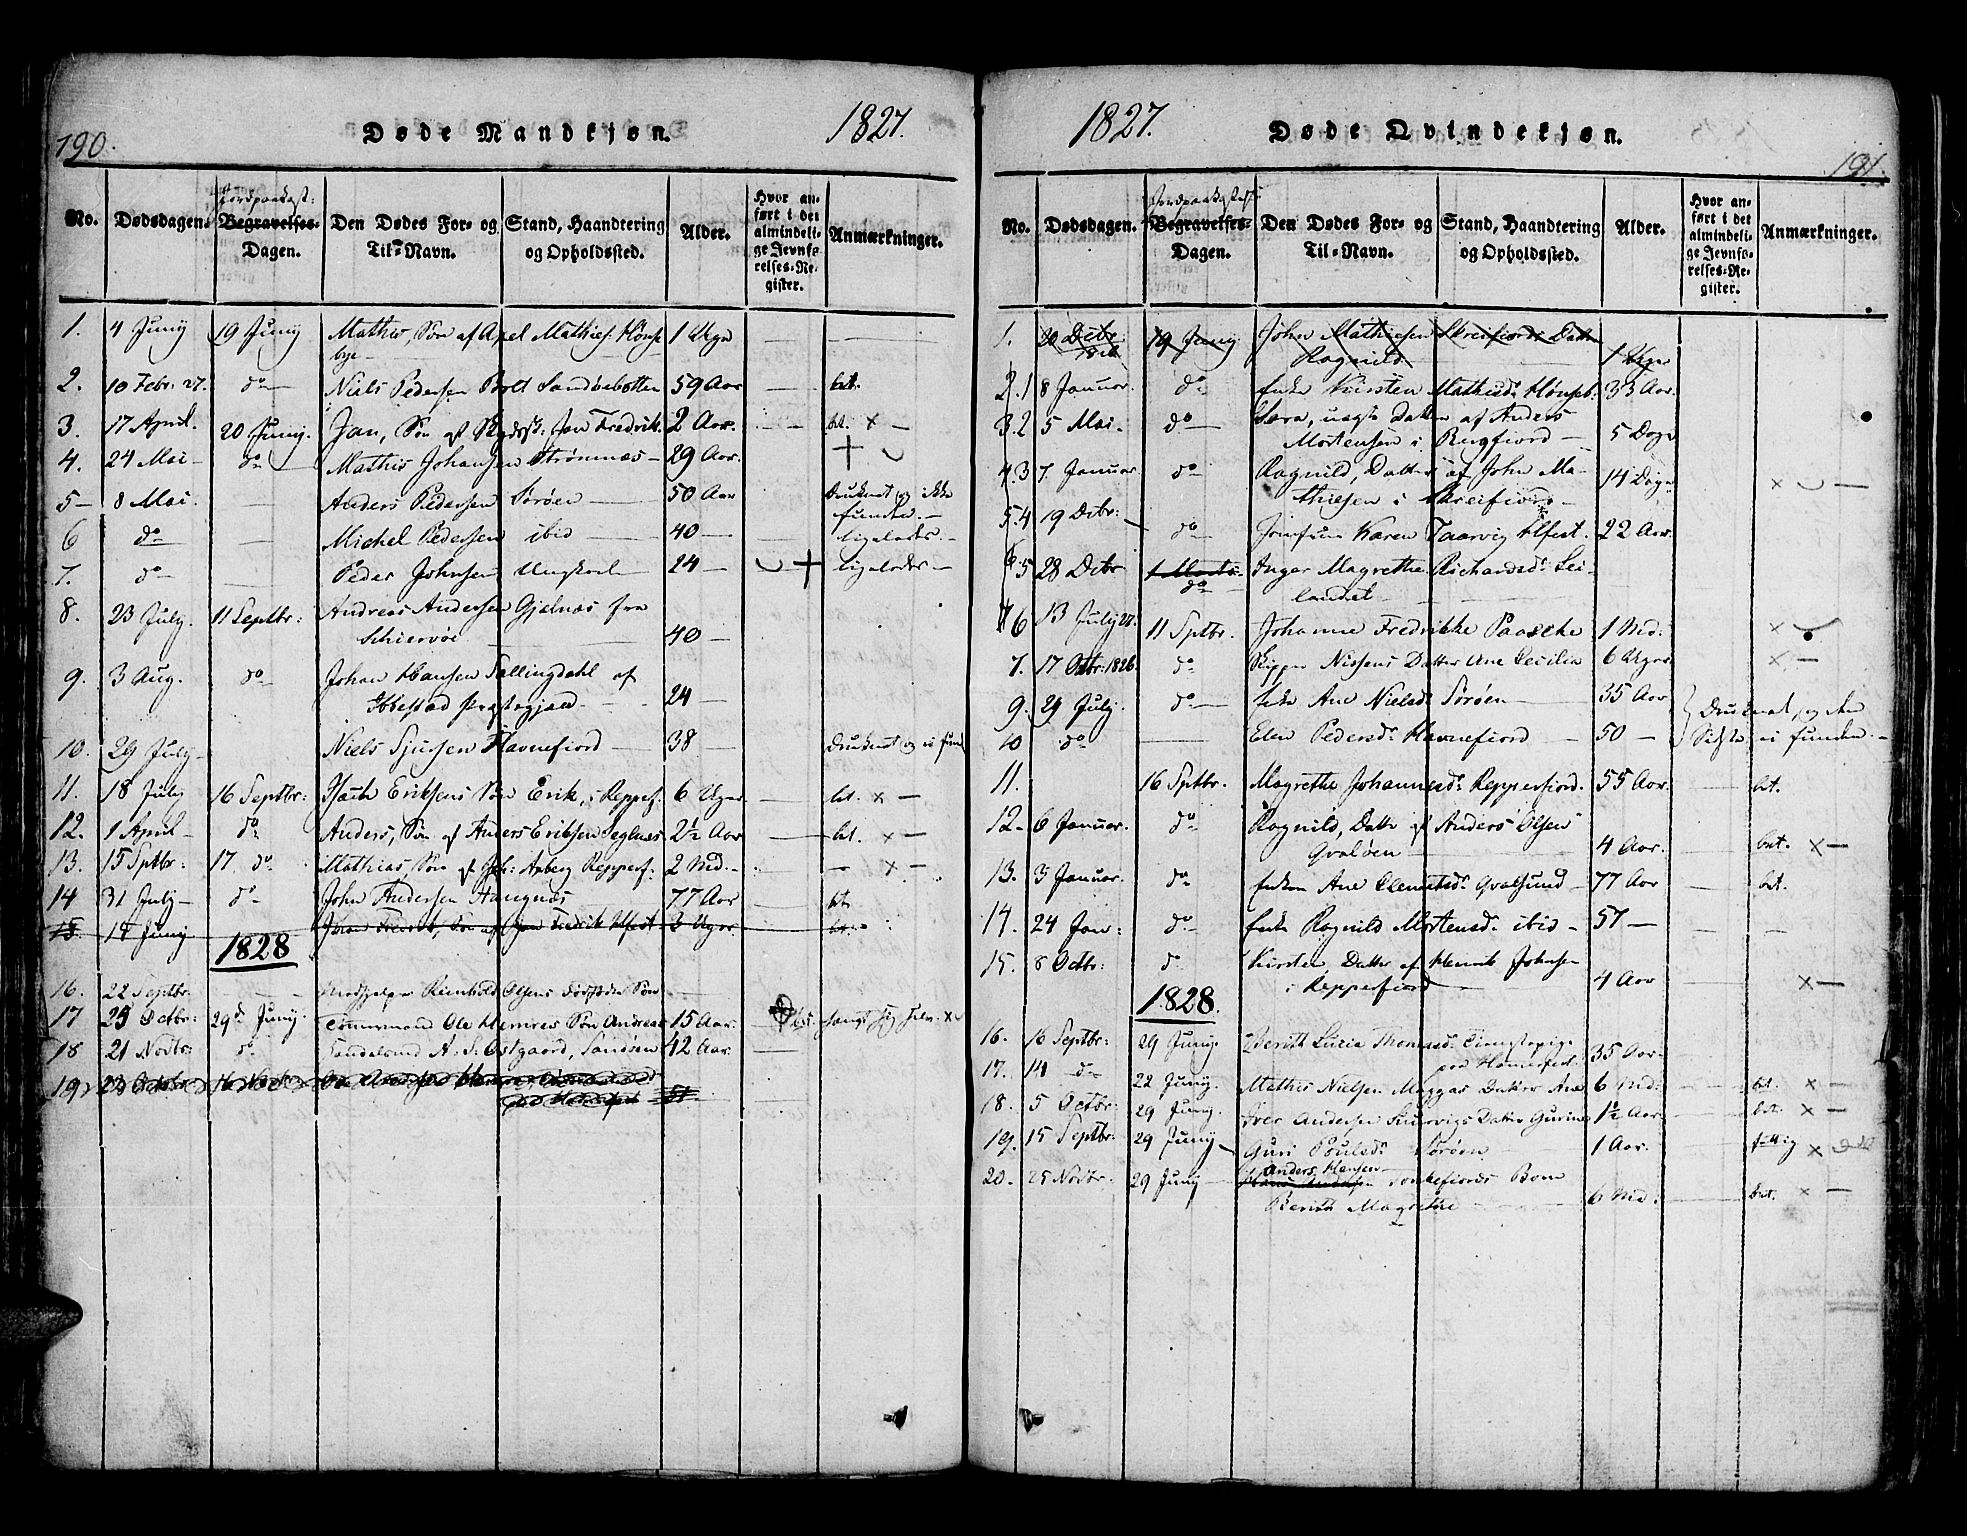 190.
Døde Mandkjøn.
1827.
Jordpaakast:
No.
Dødsdagen.
Begravelses-Dagen.
Den Dødes For- og Til-Navn.
Stand, Haandtering og Opholdssted.
Alder.
Hvor anført i det almindelige Jevnførelses-Register.
Anmærkninger.
1. 4 Juny 19 Juny Mathis, Søn af Mathies: Hønse 1 Uge
bye
2. 10 Febr: 27. do Niels Pedersen Bolt Sandøebotten 59 Aar bet.
3. 17 April. 20 Juny. Jan, Søn af Jan Fredrik 2 Aar. bet. x
4. 24 Mai do Mathis Johansen Strømnæs 29 Aar.
5 8 Mai. Anders Pedersen Sørøen 50 Aar Druknet og ikke
funden.
6 do Michel Pedersen ibid 40 ligeledes.
7. do Peder Johnsen Ungkarl 24 ligeledes
8. 23 July. 11 Septbr: Andreas Andersen Gjelnæs fra
Schiervøe 40
9. 3 Aug. do Johan Hansen Sallingdahl af
Ibbestad Præstegjæld 24
10. 29 July Niels Sjursen Havnefiord 38 Druknet og ei fund
11. 18 July 16 Septbr: Eriksens Søn Erik, i Reppef. 6 Uger bet. x
12. 1 April do Anders, Søn af Anders Eriksen Seglnæs 2½ Aar bt. x
13. 15 Sptbr: 17. do Mathias, Søn af Joh: Aaberg Repperf. 2 Md. x
14 31 July do John Andersen 77 Aar bt.
15. 14 Juny Søn af Jan Fredrik Hfest 3 Uger bt.
1828
16. 22 Septbr. Reinholt Olsens dødfødte Søn
17 25 Octbr: 29d Juny. Tømmermand Ole Søn Andreas 15 Aar.
18 21 Novbr: do A. S. Østgaard, Sandøen 42 Aar.
19 23 Octobr 16 Novbr
51
1827.
Døde Qvindekjøn.
191.
Jordpaakastels
No.
Dødsdagen.
Begravelses-Dagen.
Den Dødes For- og Til-Navn.
Stand, Haandtering og Opholdssted.
Alder.
Hvor anført i det almindelige Jevnførelses-Register.
Anmærkninger.
1. 20 Decbr. 19 Juny. John Mathiesen Skreifiords Datter
Ragnild 1 Uge
2.1 8 Januar. do Enke Kirsten Mathisd. Hønseb: 33 Aar.
3.2 5 Mai do Sara, uægte Datter af Anders
Mortensen i Rugfiord 5 Dage
4.3 7. Januar. do Ragnild, Datter af John Ma-
thiesen i Skreifiord 14 Dage x
5.4 19 Decbr: do Jomfrue Karen Taarvig Hfest. 22 Aar.
6.5 28 Decbr do Inger Magrethe Richardsd. Sei-
landet
7 6 13 July 27. 11 Sptbr. Johanne Fredrikke Paasche 1 Md: x
7. 17 Octbr: 1826. do Skipper Nissens Datter Ane Cecilia 6 Uger x
9. 29 July. do Ane Nielsd. Sørøen 35 Aar Druknet, og den
10 do Elen Pedersd. Havnefiord 50 Sidste ei funden.
11. 16 Sptbr. Magrethe Johannesd. Repperfiord. 55 Aar. bt.
12. 6 Januar. do Ragnild, Datter af Anders Olsen
Qvaløen 4 Aar. bet. x
13. 3 Januar. do Enken Ane Clemetsd. Qvalsund 77 Aar bet.
14. 24 Jan: do Enke Ragnild Mortensd. ibid 57
15. 8 Octbr: do Kirsten Datter af Henrik Johnsen
i Repperfiord 4 Aar x
1828.
16. 16 Septbr: 29 Juny. Berith Lucia Thomasd. Tienestepige
paa Hamerfest 35 Aar
17. 14 do 22 Juny. Mathis Nielsen Maggas Datter Ane 6 Md: bt. x
18. 5 Octbr: 29 Juny. Iver Andersen Datter Gurine 1½ Aar bet. x
19. 15 Septbr: 29 Juny Guri Poulsd. Sørøen 1 Aar. fattig x
20. 25 Novbr. 29 Juny Anders Hansen Torskefiords Barn
Berith Magrethe 6 Md: bet. x